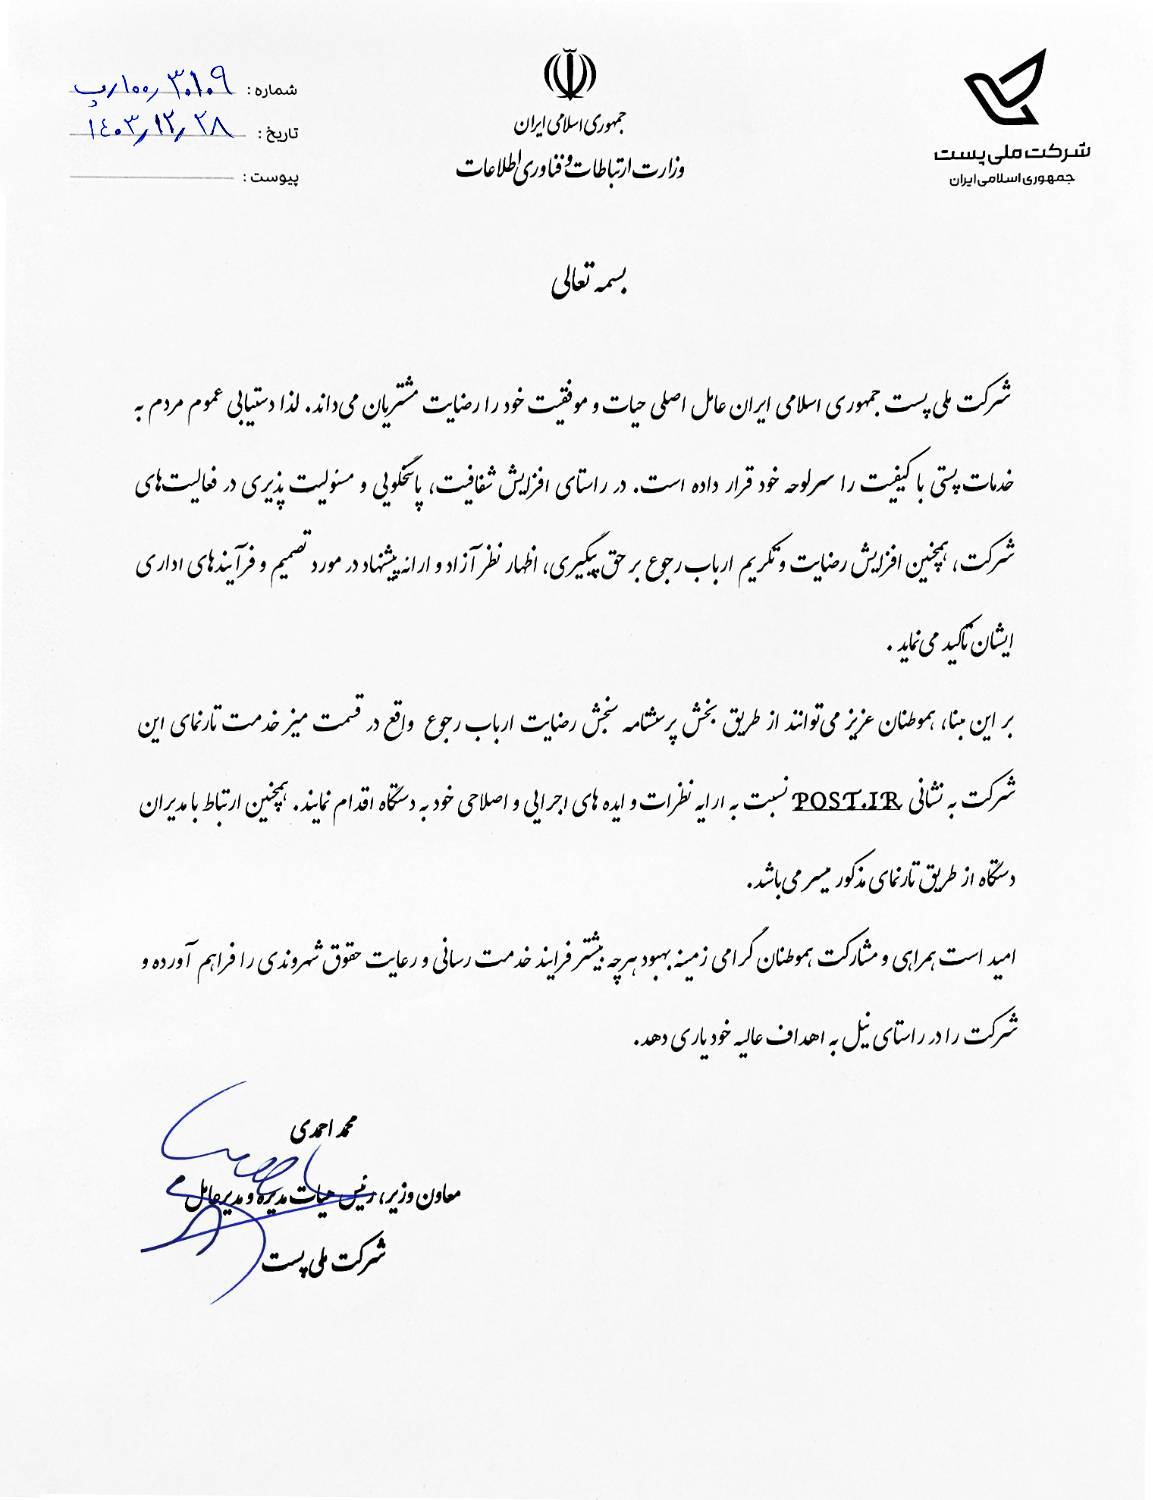 شرکت ملی پست
جمهوری اسلامی ایران
جمهوری اسلامی ایران
وزارت ارتباطات و فناوری اطلاعات
شماره: ۱۰۰/۳۰۱۰۹/پ
تاریخ: ۱۴۰۳/۱۲/۲۸
پیوست:
بسمه تعالی
شرکت ملی پست جمهوری اسلامی ایران عامل اصلی حیات و موفقیت خود را رضایت مشتریان می‌داند. لذا دستیابی عموم مردم به
خدمات پستی با کیفیت را سرلوحه خود قرار داده است. در راستای افزایش شفافیت، پاسخگویی و مسئولیت پذیری در فعالیت‌های
شرکت، همچنین افزایش رضایت و تکریم ارباب رجوع بر حق پیگیری، اظهار نظر آزاد و ارائه پیشنهاد در مورد تصمیم و فرآیندهای اداری
ایشان تأکید می‌نماید.
بر این مبنا، هموطنان عزیز می‌توانند از طریق بخش پرسشنامه سنجش رضایت ارباب رجوع واقع در قسمت میز خدمت تارنمای این
شرکت به نشانی POST.IR نسبت به ارایه نظرات و ایده های اجرایی و اصلاحی خود به دستگاه اقدام نمایند. همچنین ارتباط با مدیران
دستگاه از طریق تارنمای مذکور میسر می‌باشد.
امید است همراهی و مشارکت هموطنان گرامی زمینه بهبود هرچه بیشتر فرایند خدمت رسانی و رعایت حقوق شهروندی را فراهم آورده و
شرکت را در راستای نیل به اهداف عالیه خود یاری دهد.
محمد احمدی
معاون وزیر، رئیس هیات مدیره و مدیرعامل
شرکت ملی پست